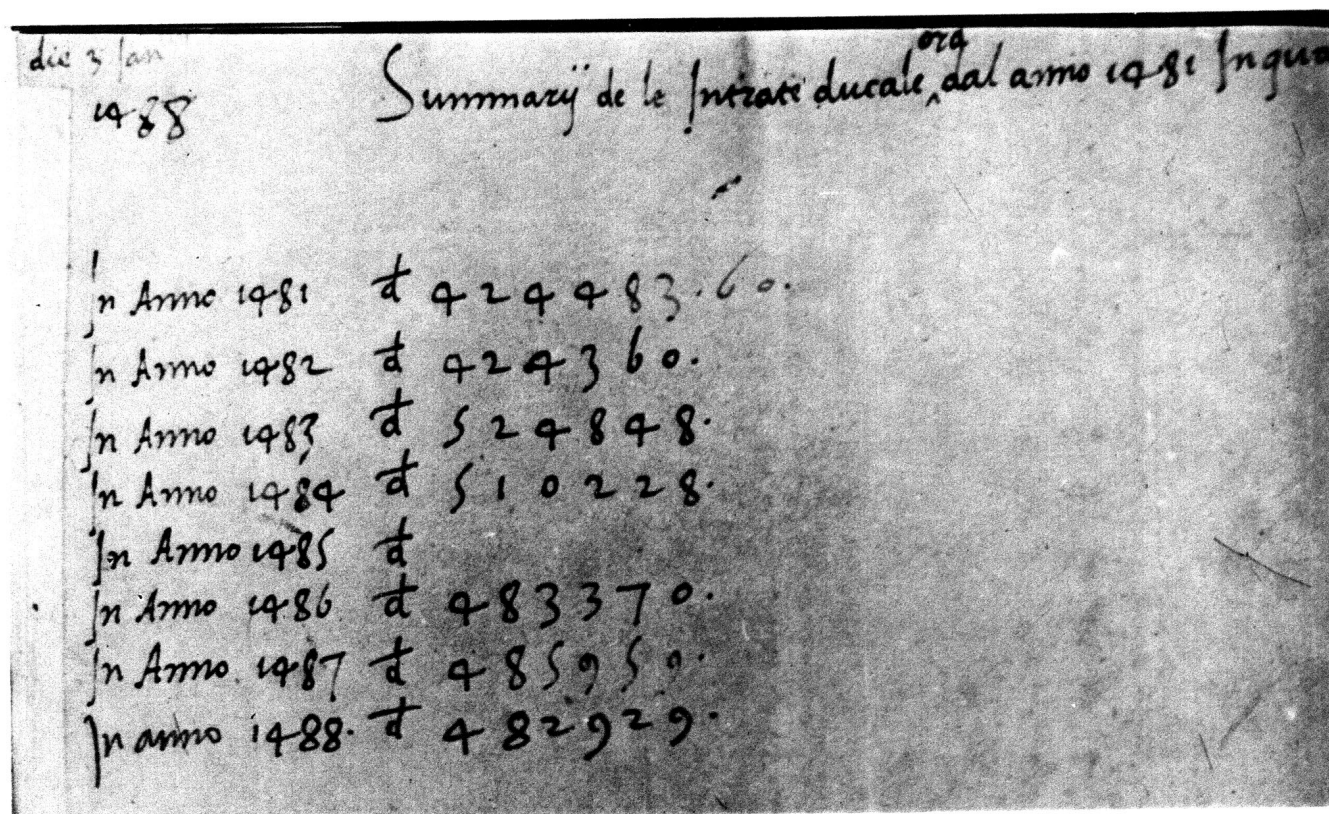 die 3 Jan
1488
Summarij de le Intrate ducale ord dal anno 1481 In qua
In Anno 1481 d 424483.60.
In Anno 1482 d 424360.
In Anno 1483 d 524848.
In Anno 1484 d 510228.
In Anno 1485 d
In Anno 1486 d 483370.
In Anno 1487 d 485959.
In anno 1488. d 482929.